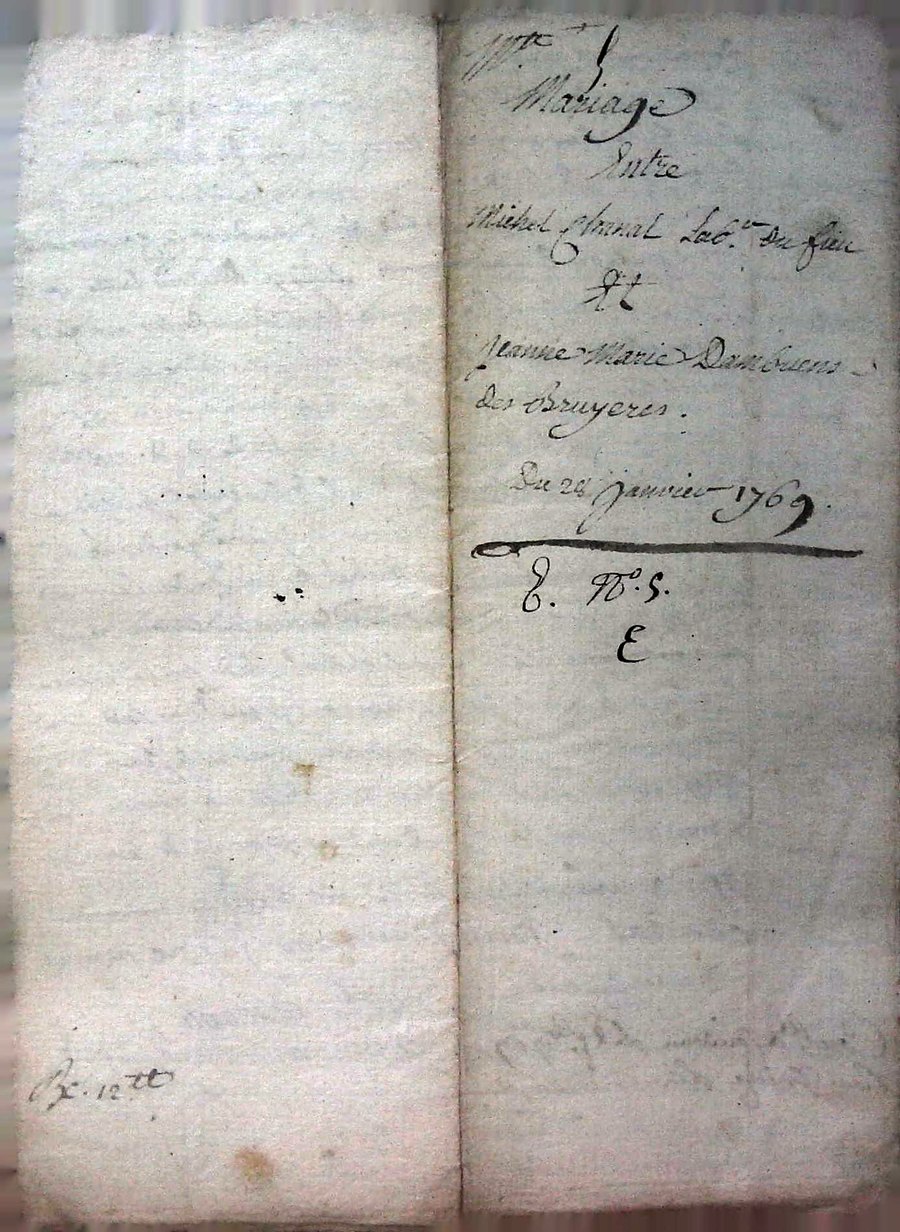 Mariage
Entre
Michel Chanal Lab.r du fieu
Et
Jeanne Marie Dambuens
des Bruyeres.
Du 28 janvier 1769.
E. N.o 5.
E
Rx. 12 tt